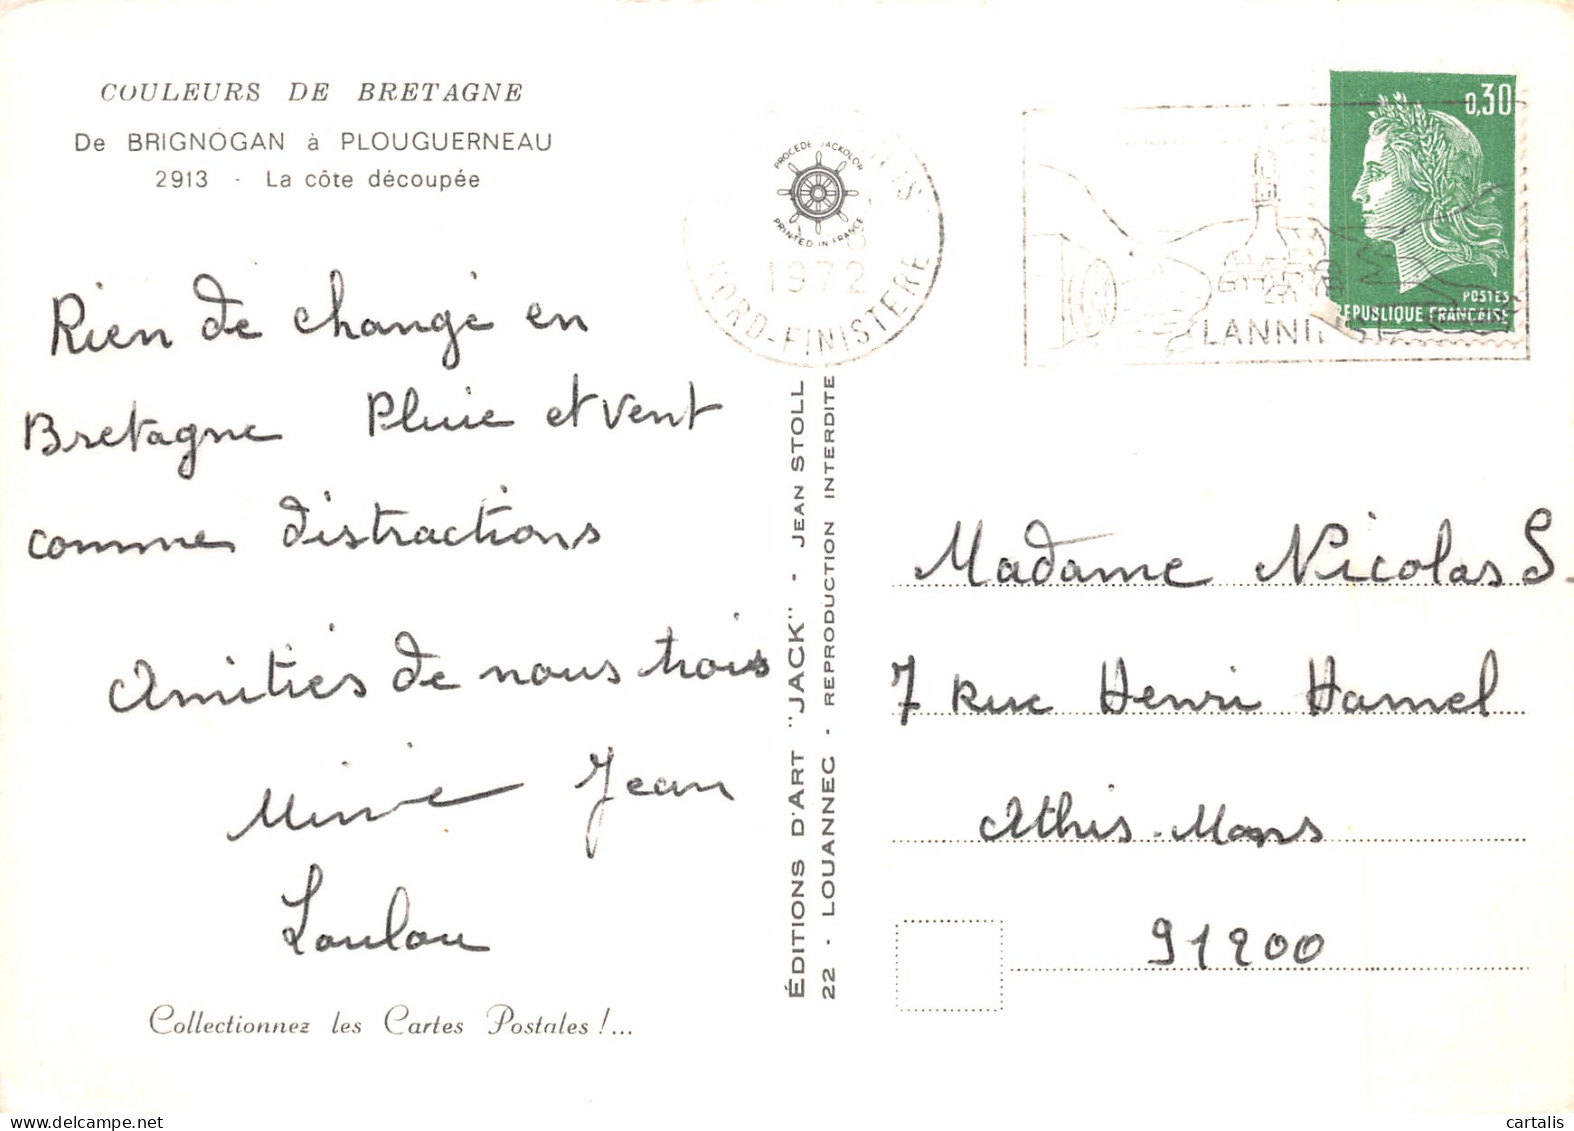 COULEURS DE BRETAGNE
De BRIGNOGAN à PLOUGUERNEAU
2913 - La côte découpée
Rien de changé en
Bretagne Pluie et vent
comme distractions
Amitiés de nous trois
Mimie Jean
Loulou
Collectionnez les Cartes Postales !...
PROCEDE JACKOLOR
PRINTED IN FRANCE
1972
NORD-FINISTERE
ÉDITIONS D'ART "JACK" - JEAN STOLL
22 - LOUANNEC - REPRODUCTION INTERDITE
LANNILIS
0,30
POSTES
REPUBLIQUE FRANCAISE
Madame Nicolas S.
7 Rue Henri Hamel
Athis-Mons
91200
cartalis
delcampe.net